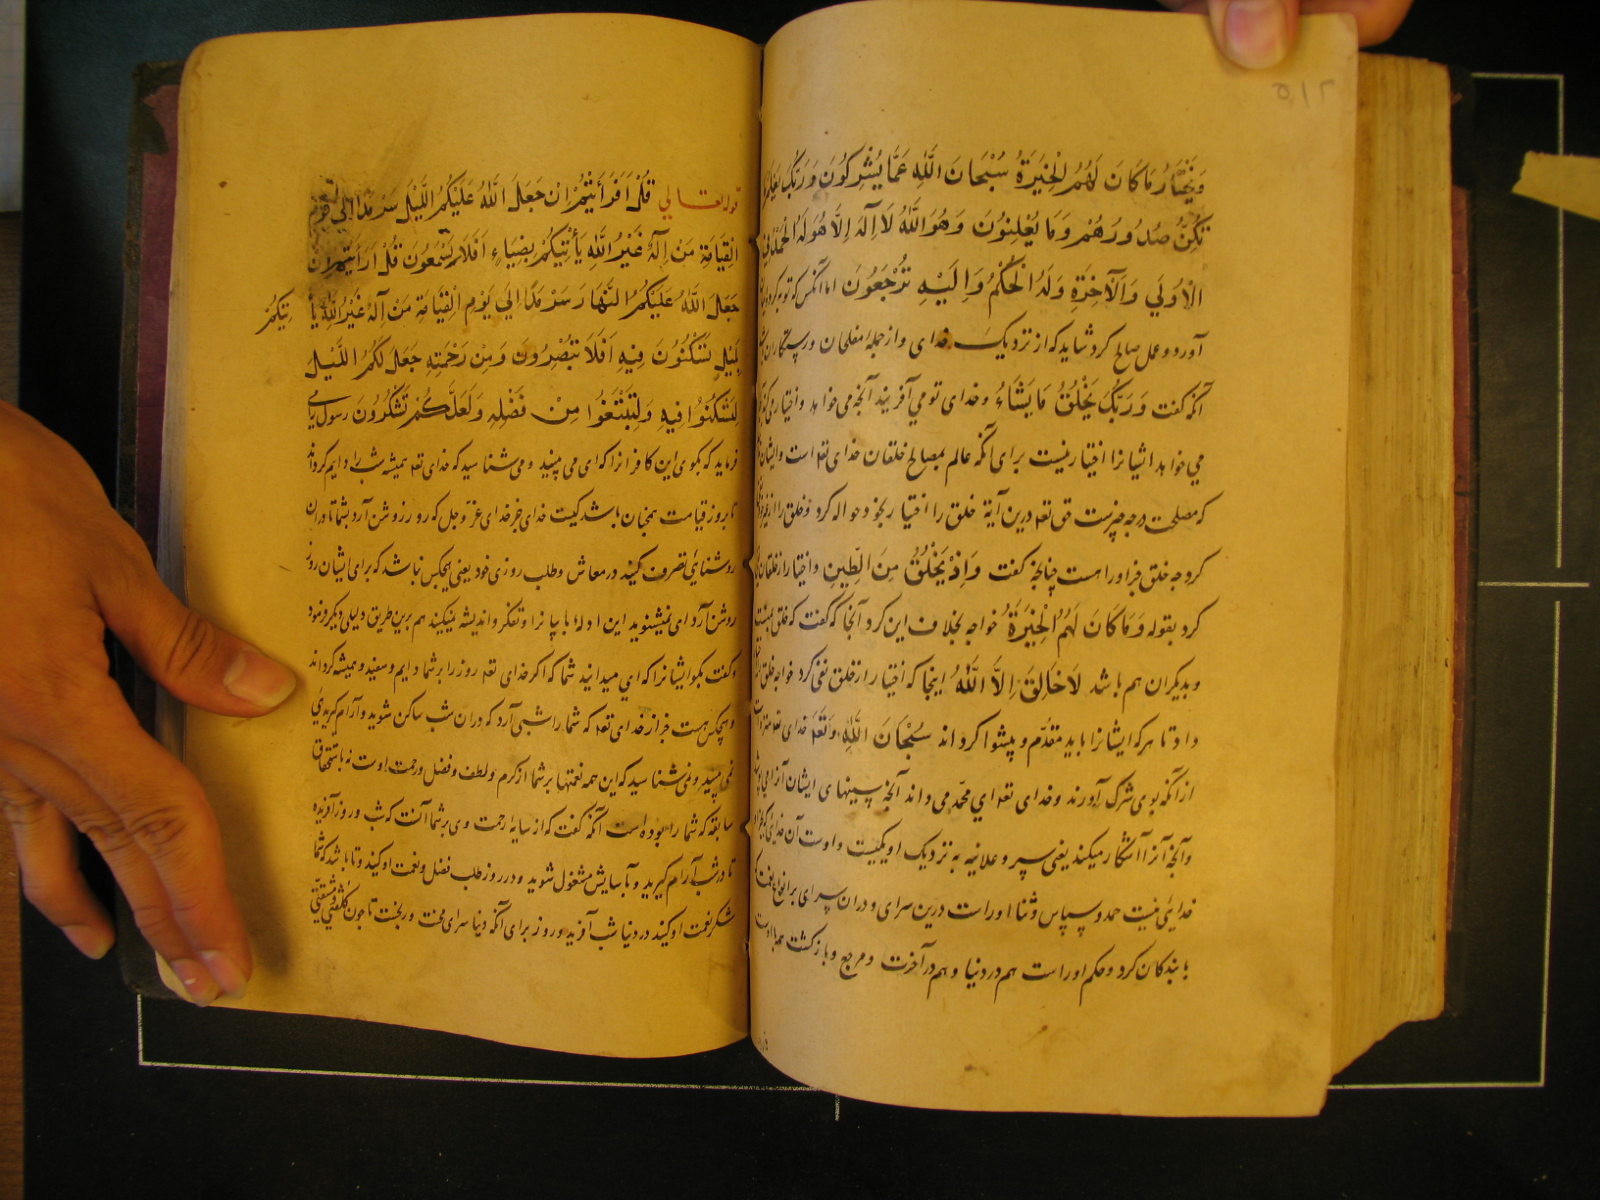 ٥١٢
وَيَخْتَارُ مَا كَانَ لَهُمُ الْخِيَرَةُ سُبْحَانَ اللَّهِ عَمَّا يُشْرِكُونَ وَرَبُّكَ يَعْلَمُ
تُكِنُّ صُدُورُهُمْ وَمَا يُعْلِنُونَ وَهُوَ اللَّهُ لَا إِلَهَ إِلَّا هُوَ لَهُ الْحَمْدُ فِي
الْأُولَى وَالْآخِرَةِ وَلَهُ الْحُكْمُ وَإِلَيْهِ تُرْجَعُونَ اما آنکس که توبه کرد
آورد و عمل صالح کرد شاید که از نزدیک خدای و از جمله مفلحان و رستکاران
آنکه کفت وَرَبُّكَ يَخْلُقُ مَا يَشَاءُ و خدای تو می آفریند آنچه می خواهد و اختیار
می خواهد ایشانرا اختیار نیست برای آنکه عالم بمصالح خلقان خدای تعه است و ایشان
که مصلحت در چه چیزست حق تعه درین آیة خلق را اختیار بخود حواله کرد و خلق را از
کرد چه خلق جز او راست چنانچه کفت وَإِذْ يَخْلُقُ مِنَ الطِّينِ و اختیار از خلقان
کرد بقوله وَمَا كَانَ لَهُمُ الْخِيَرَةُ خواجه بخلاف این کرد آنجا که کفت که خلق
و بدیکران هم باشد لَا خَالِقَ إِلَّا اللَّهُ اینجا که اختیار از خلق نفی کرد خواجه خلق
داد تا هر که ایشانرا باید مقدّم و پیشوا کردانند سُبْحَانَ اللَّهِ وَتَعَه خدای تعه
از آنکه بوی شرک آورند و خدای تعه ای محمّد می داند آنچه سینهای ایشان آنرا می
و آنچه آنرا آشکار میکنند یعنی سر و علانیه به نزدیک او یکیست و اوست آن خدائی که
خدائی نیست حمد و سپاس و ثنا اوراست درین سرای و دران سرای بر انواع نعمت
بندکان کرد و حکم اوراست هم در دنیا و هم در آخرت و مرجع و بازکشت همه با اوست
قوله تعالی قُلْ أَفَرَأَيْتُمْ إِنْ جَعَلَ اللَّهُ عَلَيْكُمُ اللَّيْلَ سَرْمَدًا إِلَى يَوْمِ
الْقِيَامَةِ مَنْ إِلَهٌ غَيْرُ اللَّهِ يَأْتِيكُمْ بِضِيَاءٍ أَفَلَا تَسْمَعُونَ قُلْ أَرَأَيْتُمْ إِنْ
جَعَلَ اللَّهُ عَلَيْكُمُ النَّهَارَ سَرْمَدًا إِلَى يَوْمِ الْقِيَامَةِ مَنْ إِلَهٌ غَيْرُ اللَّهِ يَأْ
تِيكُمْ
بِلَيْلٍ تَسْكُنُونَ فِيهِ أَفَلَا تُبْصِرُونَ وَمِنْ رَحْمَتِهِ جَعَلَ لَكُمُ اللَّيْلَ
لِتَسْكُنُوا فِيهِ وَلِتَبْتَغُوا مِنْ فَضْلِهِ وَلَعَلَّكُمْ تَشْكُرُونَ رسول را می
فرماید که بکوی این کافرانرا که ای می بینید و می شناسید که خدای تعه همیشه شب را دایم کرداند
تا بروز قیامت همچنان باشد کیست خدای جز خدای عزّ و جل که روز روشن آرد بشما تا دران
روشنایی تصرف کنید در معاش و طلب روزی خود یعنی هیچکس نباشد که برای ایشان روز
روشن آرد ای نمیشنوید این ادله با بیانرا و تفکر و اندیشه نمیکنید هم برین طریق دلیلی دیکر فرمود
و کفت بکو ایشانرا که ای میدانید شما که اکر خدای تعه روز را بر شما دایم و سفید و همیشه کرداند
و هیچکس هست جز از خدای تعه که شما را شبی آرد که دران شب ساکن شوید و آرام کیرید ای
نمی بینید و نمی شناسید که این همه نعمتها بر شما از کرم و لطف و فضل و رحمت اوست نه باستحقاق
سابقه که شما را بوده است آنکه کفت که از سایه رحمت وی بر شما آنست که شب و روز آفریده
تا در شب آرام کیرید و بآسایش مشغول شوید و در روز طلب فضل و نعمت او کنید و تا باشد که شما
شکر نعمت او کنید در دنیا شب آفرید و روز برای آنکه دنیا سرای محنت و رنجست تا چون